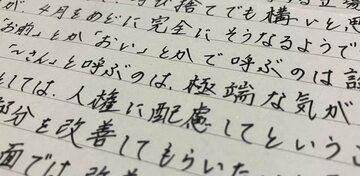 捨てでも構いと思
が、4月をめどに完全にそうなるようで
「お前」とか「おい」とかで呼ぶのは
「○○さん」と呼ぶのは、極端な気が
しては、人権に配慮してという
部分を改善してもらいた
面では